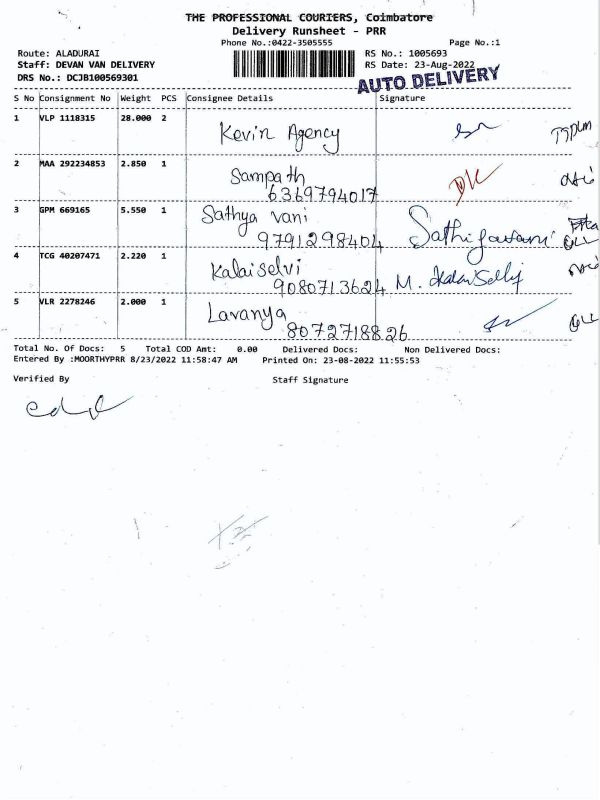 THE PROFESSIONAL COURIERS, Coimbatore
Delivery Runsheet - PRR
Phone No.:0422-3505555 Page No.:1
Route: ALADURAI RS No.: 1005693
Staff: DEVAN VAN DELIVERY RS Date: 23-Aug-2022
DRS No.: DCJB100569301 AUTO DELIVERY
S No Consignment No Weight PCS Consignee Details Signature
1 VLP 1118315 28.000 2
Kevin Agency
2 MAA 292234853 2.850 1
Sampath
6369794017
3 GPM 669165 5.550 1
Sathya vani
9791298404
4 TCG 40207471 2.220 1
Kalaiselvi
9080713624 M.
5 VLR 2278246 2.000 1
Lavanya
8072718826
Total No. Of Docs: 5 Total COD Amt: 0.00 Delivered Docs: Non Delivered Docs:
Entered By :MOORTHYPRR 8/23/2022 11:58:47 AM Printed On: 23-08-2022 11:55:53
Verified By Staff Signature